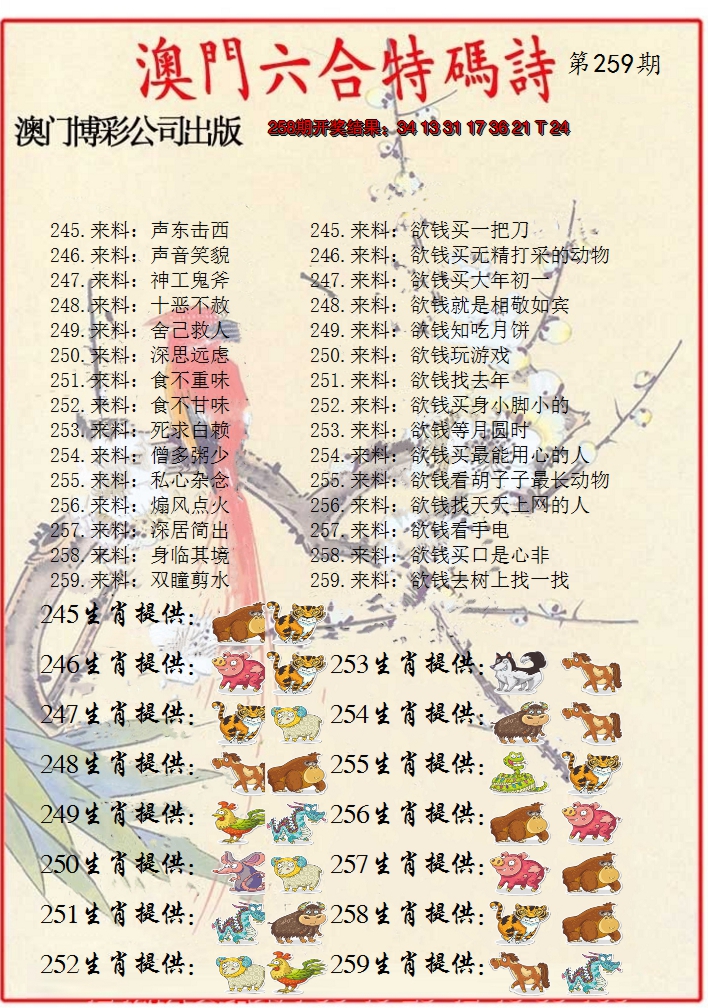 澳門六合特碼詩 第259期
澳门博彩公司出版 258期开奖结果：34 13 31 17 36 21 T 24
245.来料：声东击西 245.来料：欲钱买一把刀
246.来料：声音笑貌 246.来料：欲钱买无精打采的动物
247.来料：神工鬼斧 247.来料：欲钱买大年初一
248.来料：十恶不赦 248.来料：欲钱就是相敬如宾
249.来料：舍己救人 249.来料：欲钱知吃月饼
250.来料：深思远虑 250.来料：欲钱玩游戏
251.来料：食不重味 251.来料：欲钱找去年
252.来料：食不甘味 252.来料：欲钱买身小脚小的
253.来料：死求白赖 253.来料：欲钱等月圆时
254.来料：僧多粥少 254.来料：欲钱买最能用心的人
255.来料：私心杂念 255.来料：欲钱看胡子子最长动物
256.来料：煽风点火 256.来料：欲钱找天天上网的人
257.来料：深居简出 257.来料：欲钱看手电
258.来料：身临其境 258.来料：欲钱买口是心非
259.来料：双瞳剪水 259.来料：欲钱去树上找一找
245生肖提供：
246生肖提供： 253生肖提供：
247生肖提供： 254生肖提供：
248生肖提供： 255生肖提供：
249生肖提供： 256生肖提供：
250生肖提供： 257生肖提供：
251生肖提供： 258生肖提供：
252生肖提供： 259生肖提供：